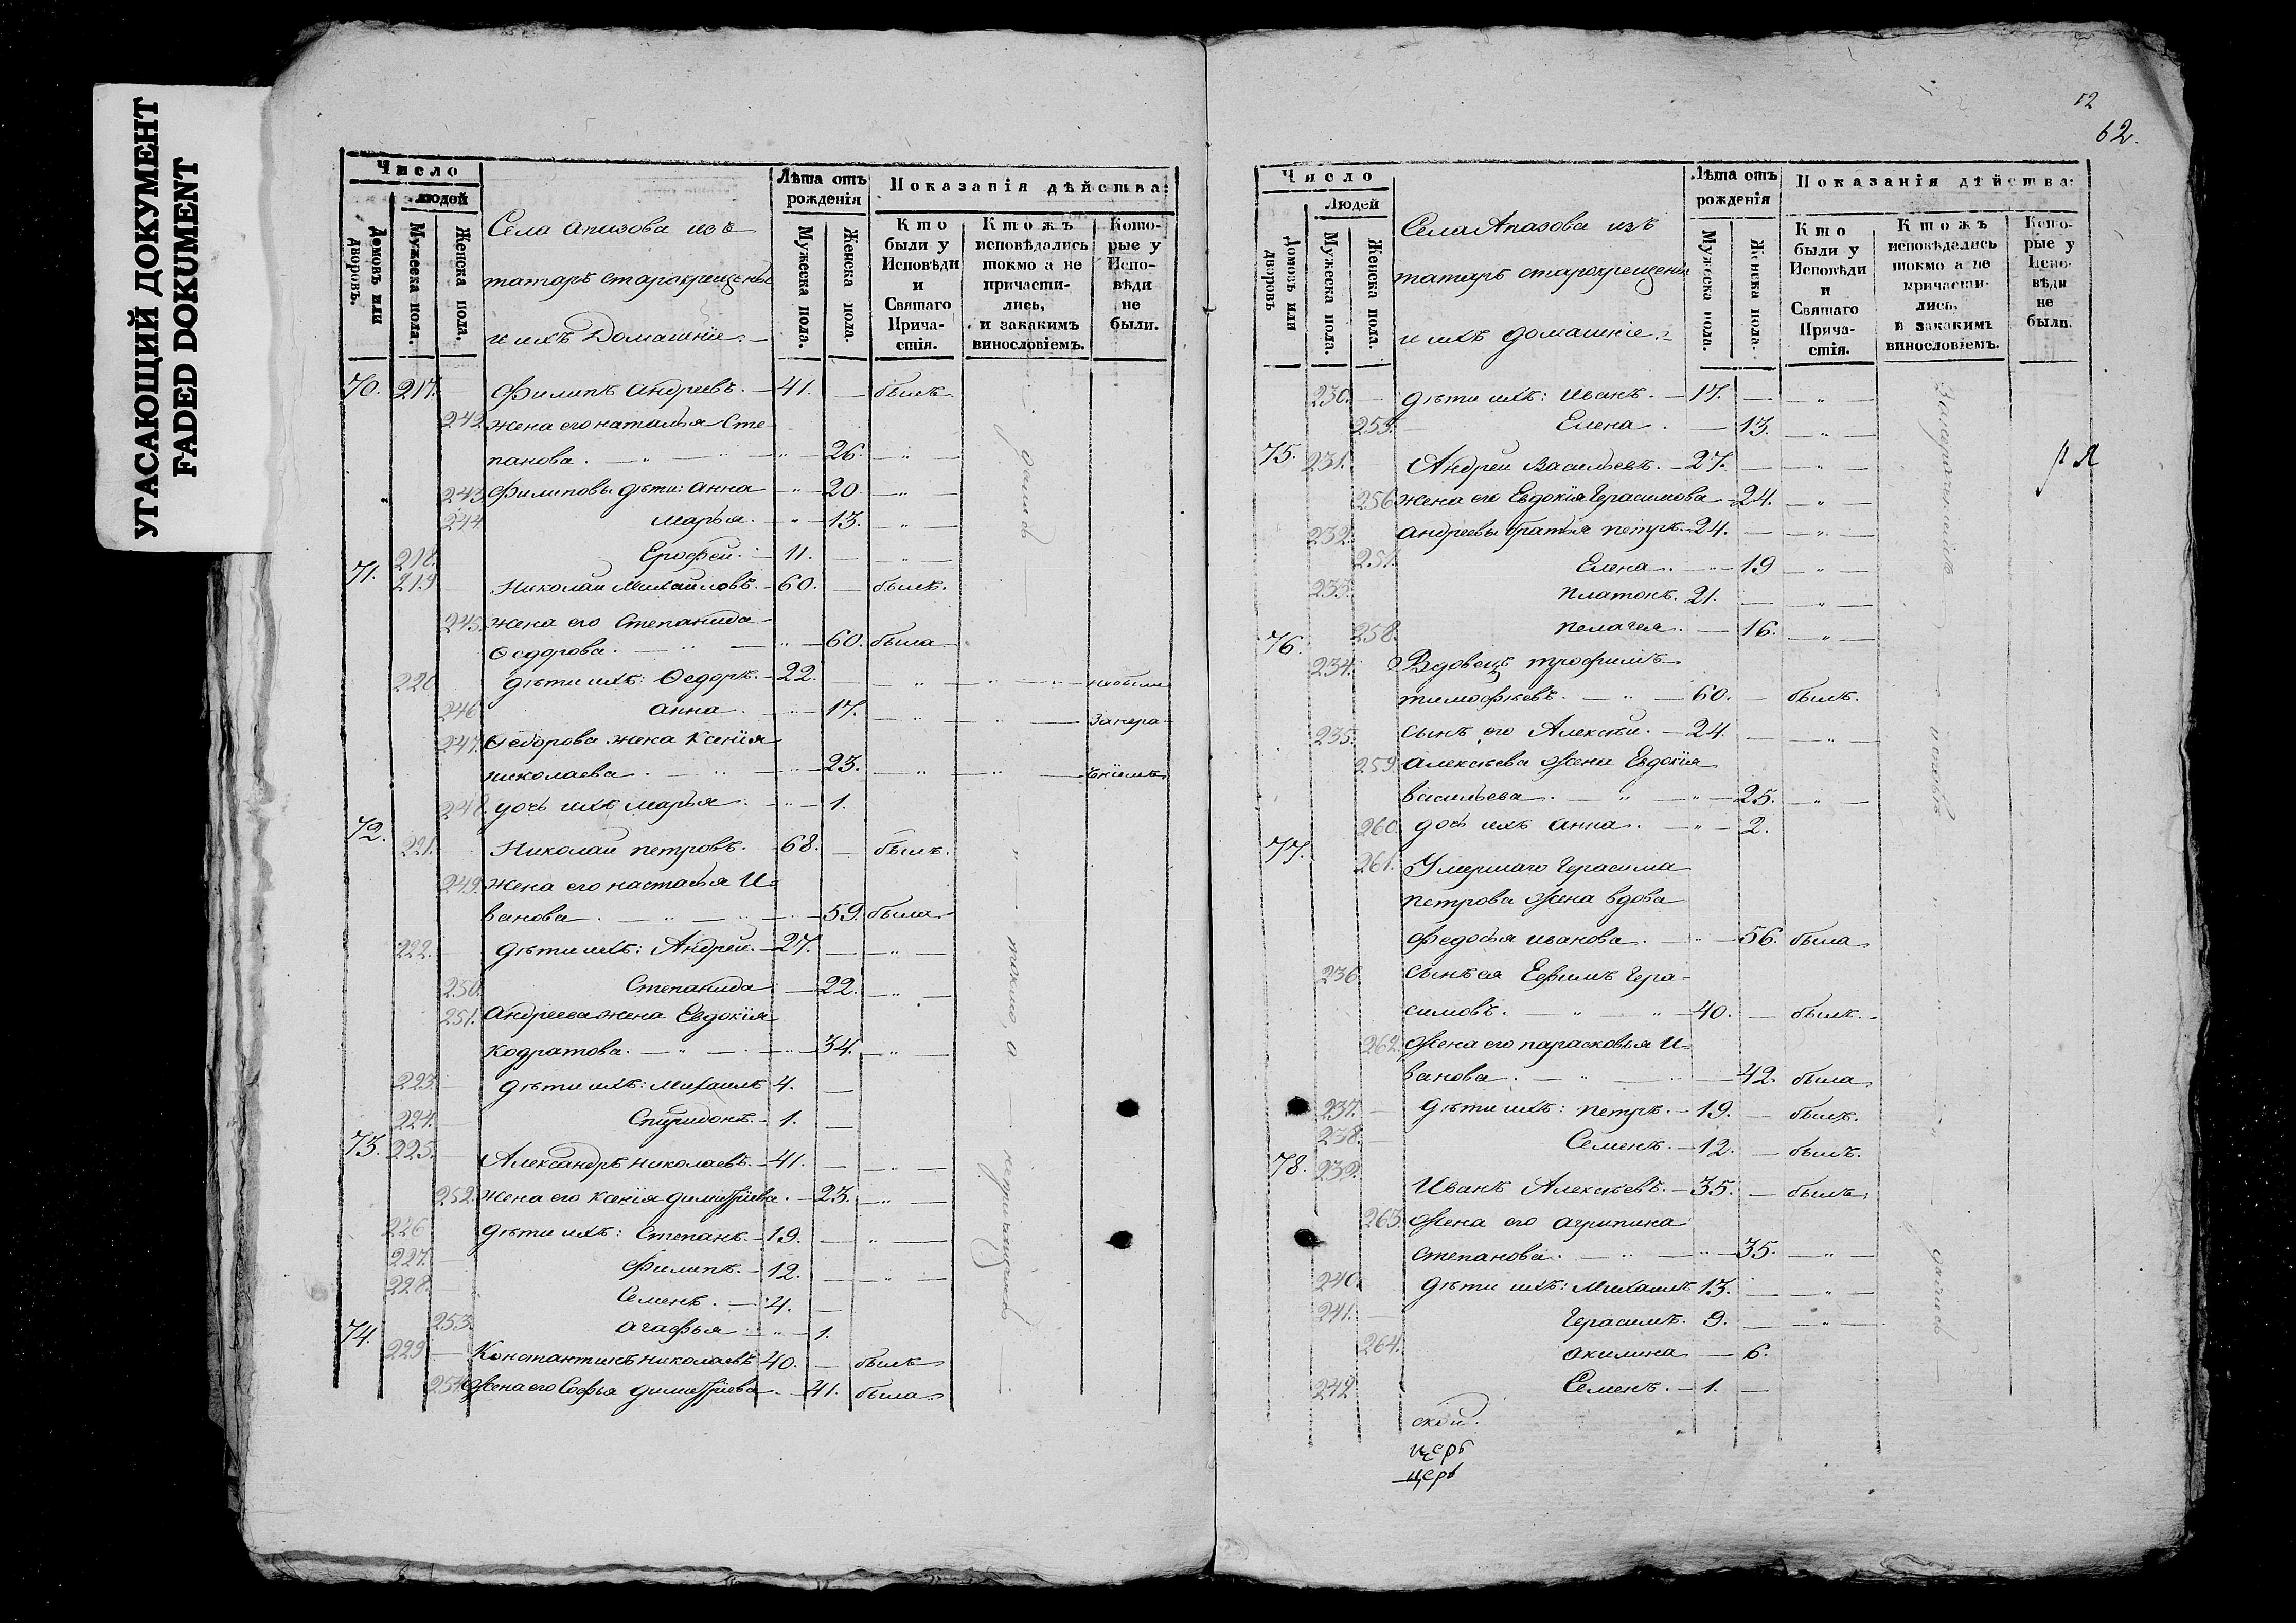 УГАСАЮЩИЙ ДОКУМЕНТ
FADED DOKUMENT
Число
людей
Домовъ или дворовъ.
Мужеска пола.
Женска пола.
Села Апазова изъ
татаръ старокрещеныхъ
и ихъ Домашнiе. —
Лѣта отъ рожденія
Мужеска пола.
Женска пола.
Показанія дѣйства:
Кто были у Исповѣди и Святаго Прича-стія.
Ктожъ исповѣдались токмо а не причасти-лись, и закакимъ винословіемъ.
Кото-рые у Испо-вѣди не были.
70. 217. Филипъ Андреевъ. — 41. — былъ
242 жена его наталья Сте-
панова. — " — 26. — " —
243 Филиповы дѣти: Анна — " — 20. — " —
244 Марья. — " — 13. — " —
218. Ерофей. — 11. — " —
71. 219 Николай Михайловъ. — 60. — былъ.
245. жена его Степанида
Ѳедорова. — " — 60. была
220 дѣти ихъ: Ѳедоръ. — 22. — " — " — небыли
246 Анна. — " — 17. — " — " — Занера-
247. Ѳедорова жена Ксенія
николаева. — " — 23. — " — " — ченіемъ
248. дочь ихъ Марья. — " — 1.
72. 221. Николай петровъ. — 68. — былъ.
249. жена его настасья И-
ванова. — " — 59. была
222. дѣти ихъ: Андрей. — 27. — " —
250. Степанида — 22. — " —
251. Андреева жена Евдокія
кодратова. — " — 34. — " —
223. дѣти ихъ: Михаилъ 4. —
224. Спиридонъ. — 1. —
73. 225. Александръ николаевъ. — 41. — " —
252. жена его Ксенія димитріева. — 23. — " —
226 дѣти ихъ: Степанъ. — 19. — " —
227. Филипъ. — 12. — " —
228. Семенъ. — 4. —
253. Агафья — " — 1.
74. 229 — Константинъ николаевъ 40. — былъ
254. Жена его Софья димитріева. — 41. была
токмо, а
непричащались
12
62.
Число
Людей
Домовъ или дворовъ
Мужеска пола.
Женска пола.
Села Апазова изъ
татаръ старокрещеныхъ
и ихъ домашніе.
Лѣта отъ рожденія
Мужеска пола.
Женска пола.
Показанія дѣйства:
Кто были у Исповѣди и Святаго Прича-стія.
Ктожъ исповѣдались токмо а не причасти-лись, и закакимъ винословіемъ.
Кото-рые у Испо-вѣди не были.
230. — дѣти ихъ: Иванъ. — 17. — " —
255. Елена. — 13. — " —
75. 231. Андрей Васильевъ. — 27. — " —
256 жена его Евдокія Герасимова — 24. — " —
232. Андреевы братья петръ. — 24. — " —
257. Елена. — " — 19 — " —
233. Платонъ. 21. — " —
258. пелагея. — 16. — " —
76. 234. Вдовецъ трофимъ
тимофѣевъ. — " — 60. — былъ.
235. сынъ его Алексѣй. — 24. — " —
259 Алексѣева Жена Евдокія
васильева. — " — " — 25. — " —
260. дочь ихъ Анна. — " — 2.
77. 261. Умершаго Герасима
петрова Жена вдова
Федосья иванова. — " — 56. была
236 сынъ ея Ефимъ Гера-
симовъ. — " — " — 40. — былъ. —
262. Жена его парасковья И-
ванова. — " — 42. была
237. — дѣти ихъ: петръ. — 19. — былъ.
238. — Семенъ. — 12. — былъ.
78. 239. Иванъ Алексѣевъ. — 35. — былъ
263. Жена его Агрипина
степанова. — " — " — 35. — " —
240. дѣти ихъ: Михаилъ 13. — " —
241. — Герасимъ. 9. — " —
264. Акилина — 6.
242 Семенъ. — 1. —
ской.
церь
церь